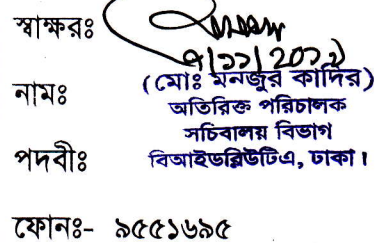 স্বাক্ষরঃ
৭/১১/2০১১
নামঃ (মোঃ মনজুর কাদির)
অতিরিক্ত পরিচালক
সচিবালয় বিভাগ
পদবীঃ বিআইডব্লিউটিএ, ঢাকা।
ফোনঃ- ৯৫৫১৬৯৫